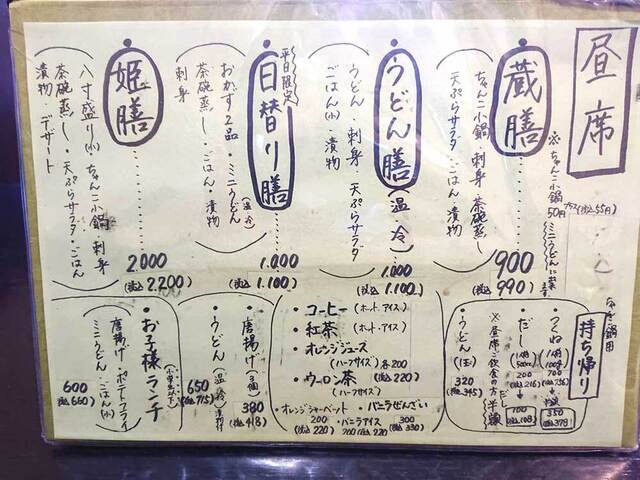 昼席
蔵膳
900
(税込 990)
ちゃんこ小鍋 刺身 茶碗蒸し
天ぷらサラダ・ごはん・漬物
※ちゃんこ小鍋
50円 プラス(税込55円)
ミニうどんに変
うどん膳
(温・冷)
1.000
(税込 1.100)
うどん・刺身・天ぷらサラダ
ごはん(小) 漬物
平日限定
日替り膳
1.000
(税込 1.100)
おかず2品・ミニうどん(温・冷)
茶碗蒸し・ごはん・漬物
刺身
姫膳
2.000
(税込 2.200)
八寸盛り(小)・ちゃんこ小鍋・刺身
茶碗蒸し・天ぷらサラダ・ごはん
漬物・デザート
持ち帰り
・つくね
350
(税込 378)
・だし
500ml
200
(税込 216)
100
(税込 108)
※昼席ご飲食の方 半額
・うどん(1玉)
320
(税込 345)
・コーヒー (ホット・アイス)
・紅茶 (ホット・アイス)
・オレンジジュース
(ハーフサイズ) 各200
・ウーロン茶 (税込 220)
(ハーフサイズ)
・オレンジシャーベット
200
(税込 220)
・バニラアイス
200 (税込 220)
・バニラぜんざい
300
(税込 330)
・唐揚げ(3個)
380
(税込 418)
・うどん(温・冷) 漬物付
650
(税込 715)
・お子様ランチ
(小学生以下)
唐揚げ・ポテトフライ
ミニうどん・ごはん(小)
600
(税込 660)